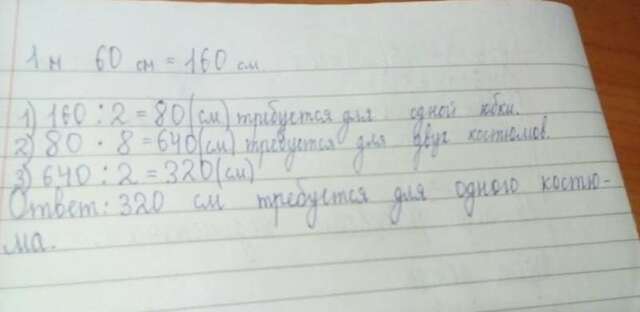 1 м 60 см = 160 см.
1) 160 : 2 = 80 (см) требуется для одной юбки.
2) 80 · 8 = 640 (см) требуется для двух костюмов.
3) 640 : 2 = 320 (см)
Ответ: 320 см требуется для одного костю-
ма.